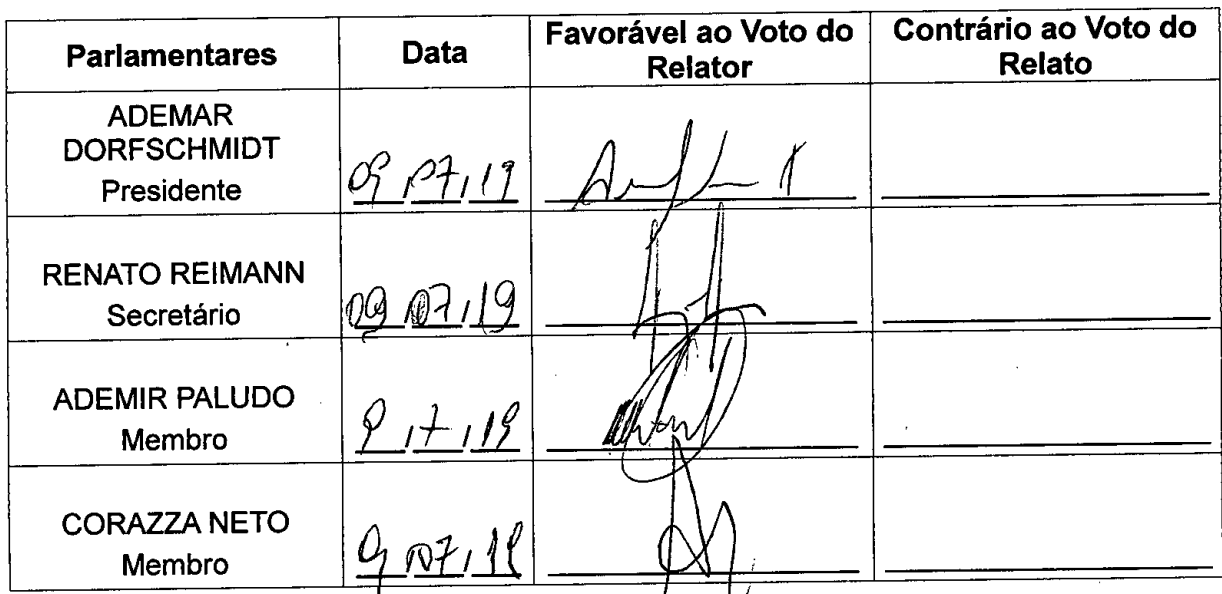 Parlamentares
Data
Favorável ao Voto do
Relator
Contrário ao Voto do
Relato
ADEMAR
DORFSCHMIDT
Presidente
09/07/19
RENATO REIMANN
Secretário
09/07/19
ADEMIR PALUDO
Membro
9/7/19
CORAZZA NETO
Membro
9/07/19